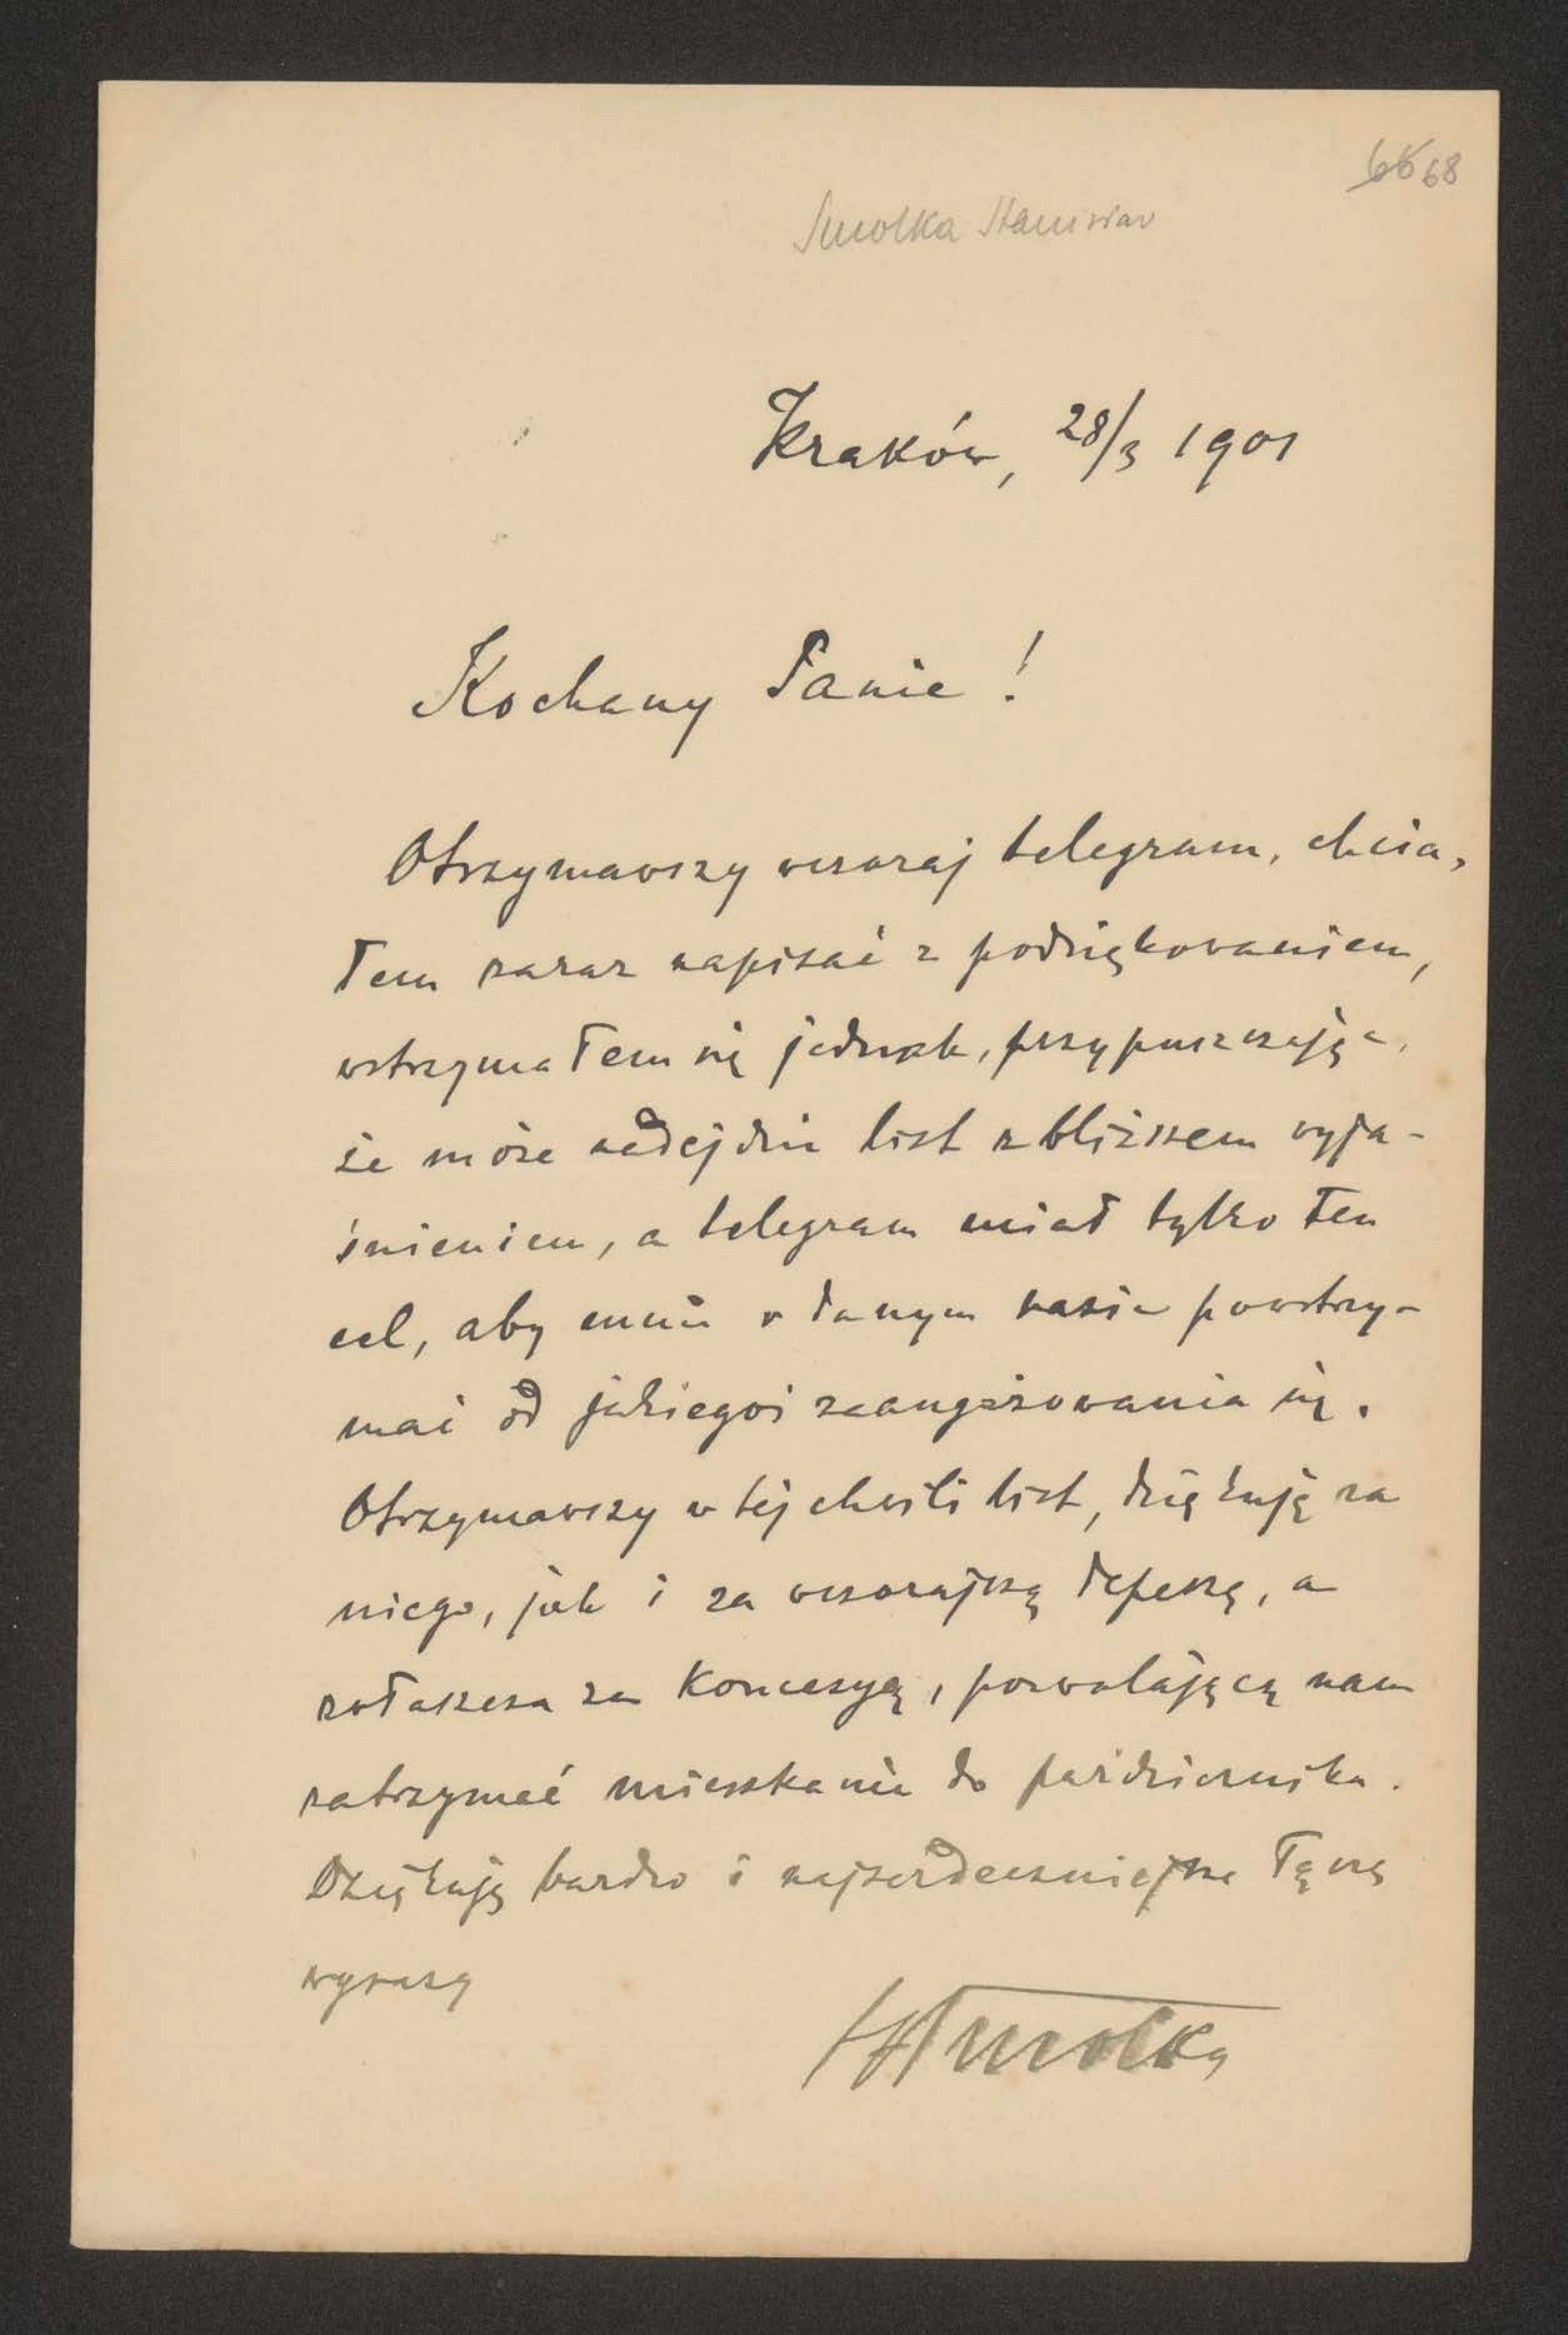 66 68
Smolka Stanisław
Kraków, 28/3 1901
Kochany Panie!
Otrzymawszy wczoraj telegram, chcia-
łem zaraz napisać z podziękowaniem,
wstrzymałem się jednak, przypuszczając,
że może nadejdzie list z bliższem wyja-
śnieniem, a telegram miał tylko ten
cel, aby mnie w danym razie powstrzy-
mać od jakiegoś zaangażowania się.
Otrzymawszy w tej chwili list, dziękuję za
niego, jak i za wczorajszą depeszę, a
zwłaszcza za koncesyą, pozwalającą nam
zatrzymać mieszkanie do października.
Dziękuję bardzo i najserdeczniejsze łączę
wyrazy
Smolka